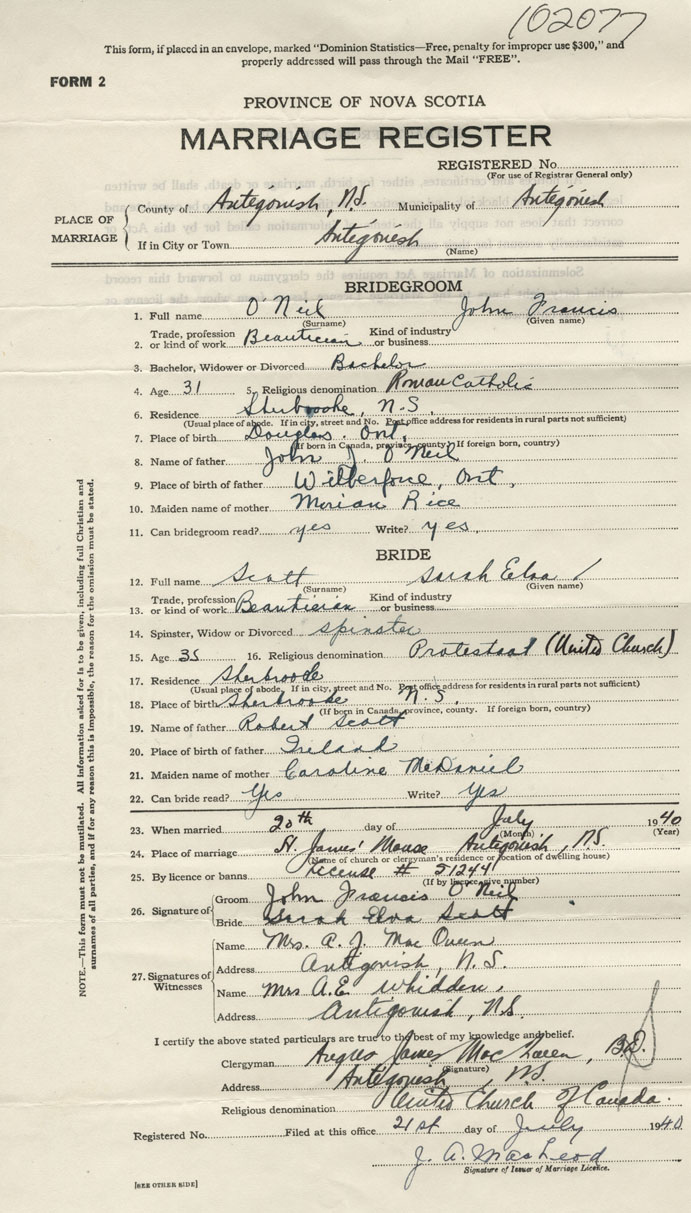 102077
This form, if placed in an envelope, marked "Dominion Statistics—Free, penalty for improper use $300," and
properly addressed will pass through the Mail "FREE".
FORM 2
PROVINCE OF NOVA SCOTIA
MARRIAGE REGISTER
REGISTERED No.
(For use of Registrar General only)
PLACE OF MARRIAGE
County of Antigonish, N.S. Municipality of Antigonish
If in City or Town Antigonish
(Name)
BRIDEGROOM
1. Full name O'Neil John Francis
(Surname) (Given name)
2. Trade, profession or kind of work Beautician Kind of industry or business
3. Bachelor, Widower or Divorced Bachelor
4. Age 31 5. Religious denomination Roman Catholic
6. Residence Sherbrooke, N.S.
(Usual place of abode. If in city, street and No. Post office address for residents in rural parts not sufficient)
7. Place of birth Douglas. Ont.
(If born in Canada, province, county. If foreign born, country)
8. Name of father John J. O'Neil
9. Place of birth of father Wilberforce, Ont,
10. Maiden name of mother Morian Rice
11. Can bridegroom read? yes Write? yes
BRIDE
12. Full name Scott Sarah Elva
(Surname) (Given name)
13. Trade, profession or kind of work Beautician Kind of industry or business
14. Spinster, Widow or Divorced spinster
15. Age 35 16. Religious denomination Protestant (United Church)
17. Residence Sherbrooke
(Usual place of abode. If in city, street and No. Post office address for residents in rural parts not sufficient)
18. Place of birth Sherbrooke N.S.
(If born in Canada, province, county. If foreign born, country)
19. Name of father Robert Scott
20. Place of birth of father Ireland
21. Maiden name of mother Caroline McDaniel
22. Can bride read? Yes Write? Yes
23. When married 20th day of July 1940
(Month) (Year)
24. Place of marriage St. James' Manse Antigonish, N.S.
(Name of church or clergyman's residence or location of dwelling house)
25. By licence or banns License # 51244
(If by licence, give number)
26. Signature of
Groom John Francis O'Neil
Bride Sarah Elva Scott
27. Signatures of Witnesses
Name Mrs. A. J. Mac Queen
Address Antigonish, N.S.
Name Mrs A.E. Whidden,
Address Antigonish, N.S.
I certify the above stated particulars are true to the best of my knowledge and belief.
Clergyman Angus James Mac Queen, B.D.
(Signature)
Address Antigonish, N.S.
Religious denomination United Church of Canada.
Registered No. Filed at this office 21st day of July 1940
J. A. MacLeod
Signature of Issuer of Marriage Licence.
[SEE OTHER SIDE]
NOTE.—This form must not be mutilated. All information asked for is to be given, including full Christian and
surnames of all parties, and if for any reason this is impossible, the reason for the omission must be stated.